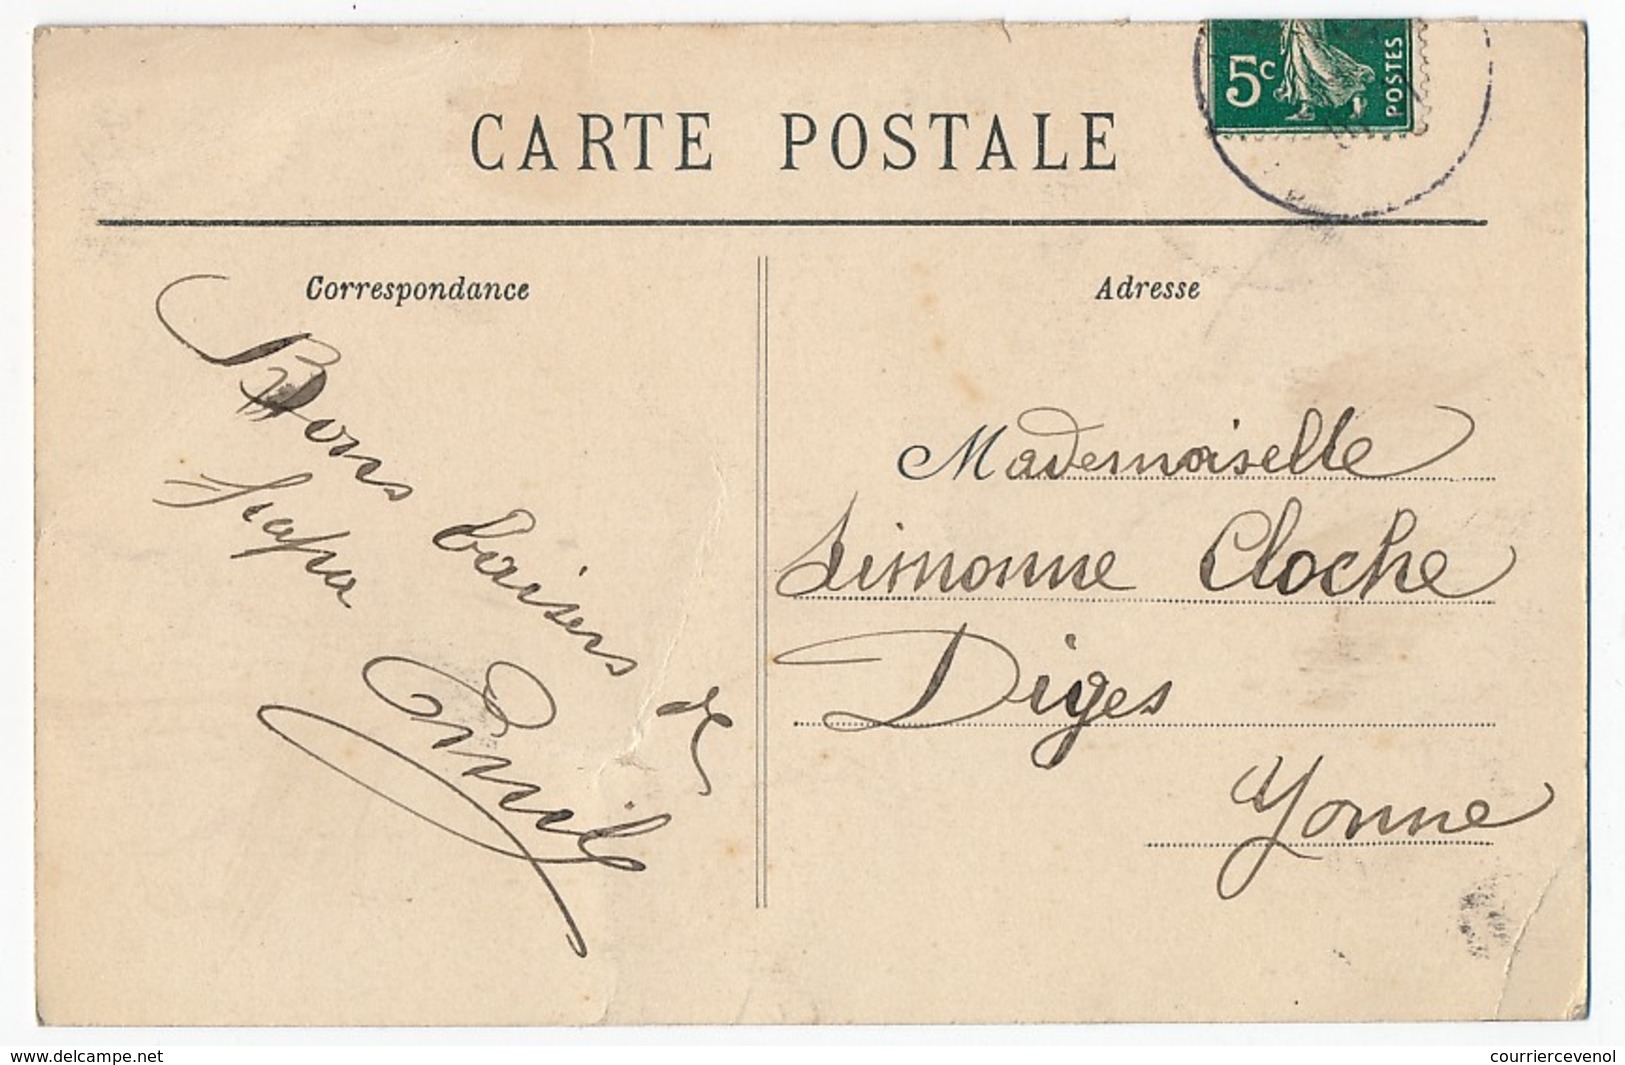 CARTE POSTALE
5c
POSTES
Correspondance
Bons baisers de
papa
Emile
Adresse
Mademoiselle
Simonne Cloche
Diges
Yonne
www.delcampe.net
courriercevenol